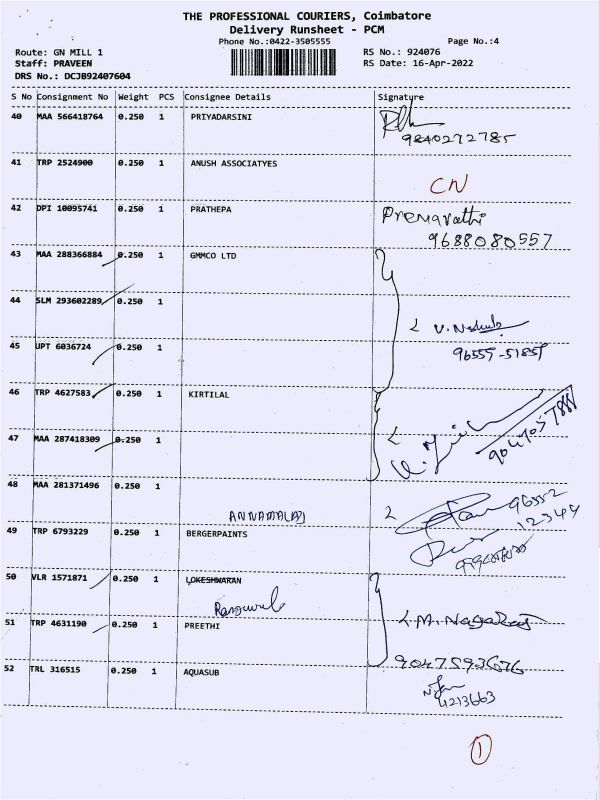 THE PROFESSIONAL COURIERS, Coimbatore
Delivery Runsheet - PCM
Phone No.:0422-3505555 Page No.:4
Route: GN MILL 1 RS No.: 924076
Staff: PRAVEEN RS Date: 16-Apr-2022
DRS No.: DCJB92407604
S No Consignment No Weight PCS Consignee Details Signature
40 MAA 566418764 0.250 1 PRIYADARSINI
9840272785
41 TRP 2524900 0.250 1 ANUSH ASSOCIATYES
CN
42 DPI 10095741 0.250 1 PRATHEPA
9688080557
43 MAA 288366884 0.250 1 GMMCO LTD
44 SLM 293602289 0.250 1
45 UPT 6036724 0.250 1
46 TRP 4627583 0.250 1 KIRTILAL
47 MAA 287418309 0.250 1
48 MAA 281371496 0.250 1
ANNAMALAI
96552
12344
49 TRP 6793229 0.250 1 BERGERPAINTS
50 VLR 1571871 0.250 1 LOKESHWARAN
51 TRP 4631190 0.250 1 PREETHI
M. Nagaraj
9047593676
52 TRL 316515 0.250 1 AQUASUB
4213663
1